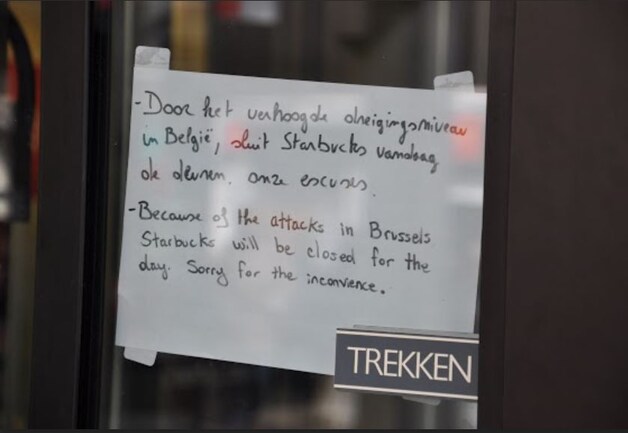 - Door het verhoogde dreigingsniveau
in België, sluit Starbucks vandaag
de deuren. onze excuses.
- Because of the attacks in Brussels
Starbucks will be closed for the
day. Sorry for the inconvience.
TREKKEN